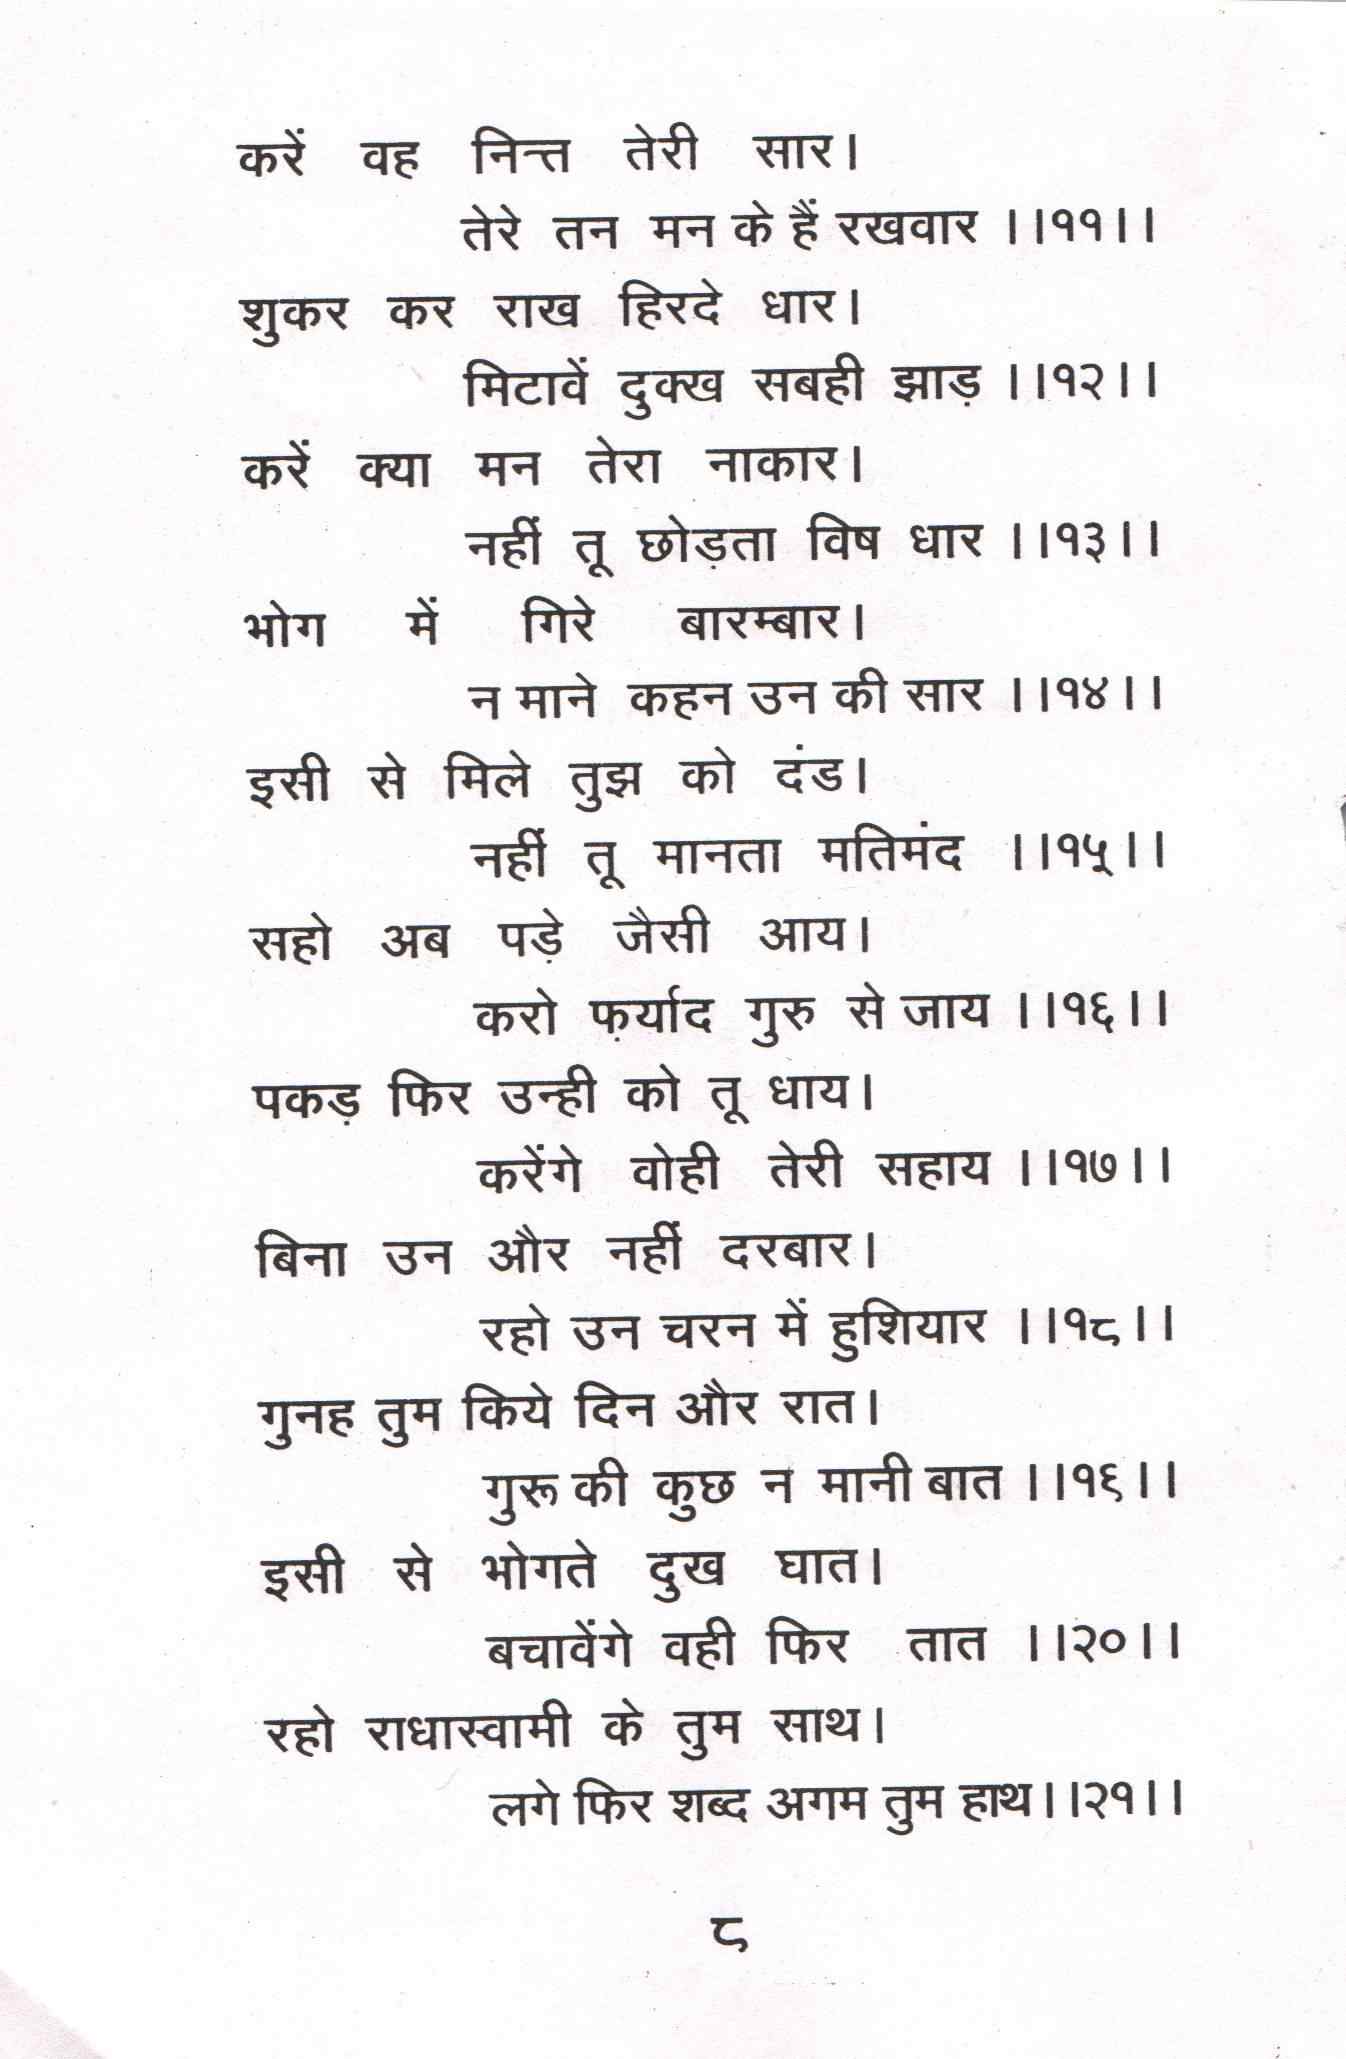 करें वह नित्त तेरी सार।
तेरे तन मन के हैं रखवार ।।११।।
शुकर कर राख हिरदे धार।
मिटावें दुक्ख सबही झाड़ ।।१२।।
करें क्या मन तेरा नाकार।
नहीं तू छोड़ता विष धार ।।१३।।
भोग में गिरे बारम्बार।
न माने कहन उन की सार ।।१४।।
इसी से मिले तुझ को दंड।
नहीं तू मानता मतिमंद ।।१५।।
सहो अब पड़े जैसी आय।
करो फ़र्याद गुरु से जाय ।।१६।।
पकड़ फिर उन्ही को तू धाय।
करेंगे वोही तेरी सहाय ।।१७।।
बिना उन और नहीं दरबार।
रहो उन चरन में हुशियार ।।१८।।
गुनह तुम किये दिन और रात।
गुरू की कुछ न मानी बात ।।१६।।
इसी से भोगते दुख घात।
बचावेंगे वही फिर तात ।।२०।।
रहो राधास्वामी के तुम साथ।
लगे फिर शब्द अगम तुम हाथ।।२१।।
८